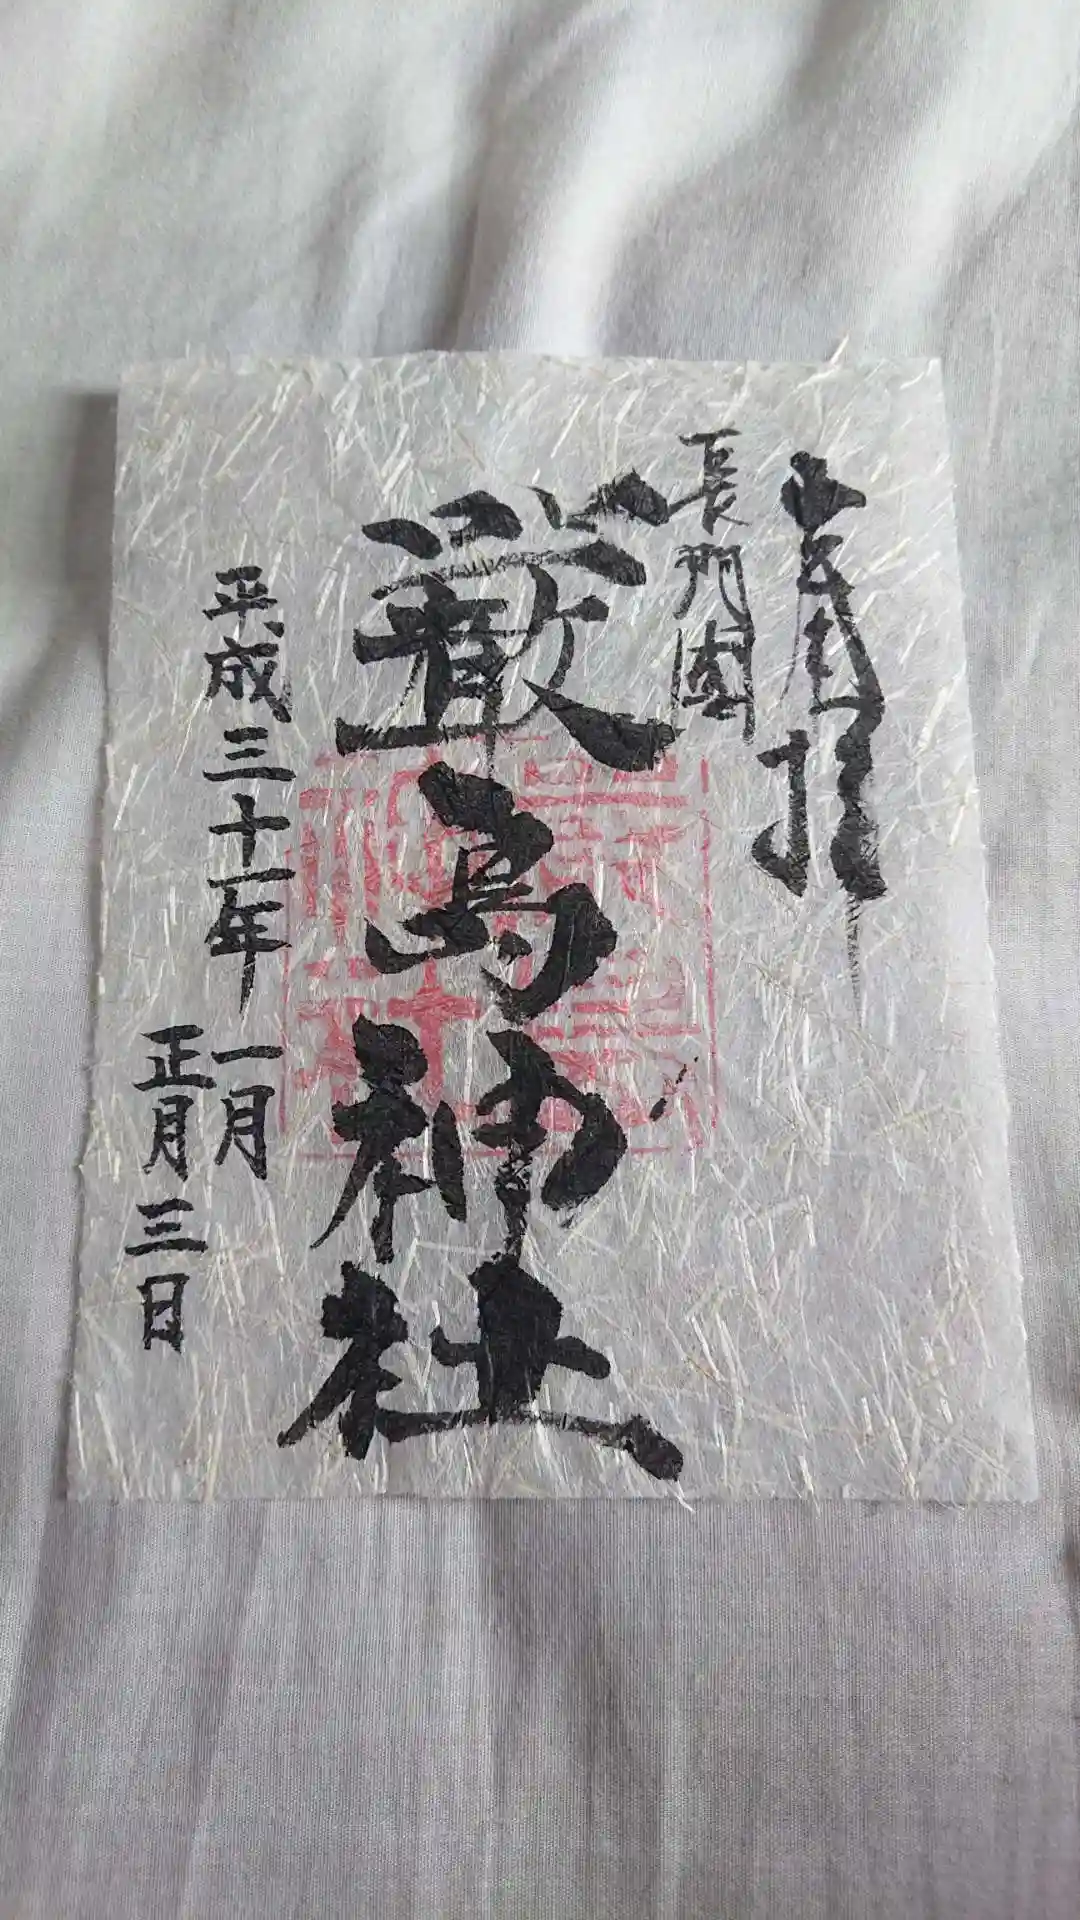 奉拝
長門國
厳島神社
平成三十一年一月
正月三日